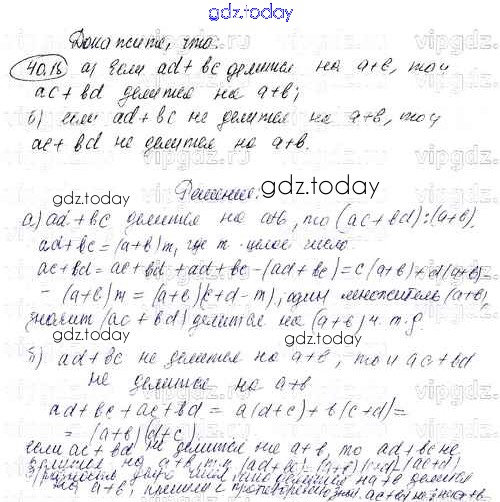 gdz.today
Докажите, что:
40.18 а) Если ad + bc делится на a+b, то и
ac + bd делится на a+b;
б) если ad + bc не делится на a+b, то и
ac + bd не делится на a+b.
gdz.today
Решение:
gdz.today
а) ad + bc делится на a+b, то (ac + bd) : (a+b).
ad + bc = (a+b)m, где m - целое число.
ac + bd = ac + bd + ad + bc - (ad + bc) = c(a+b) + d(a+b) -
- (a+b)m = (a+b)(c+d-m), один множитель (a+b),
значит (ac + bd) делится на (a+b) ч.т.д.
gdz.today
gdz.today
б) ad + bc не делится на a+b, то и ac + bd
не делится на a+b
ad + bc + ac + bd = a(d+c) + b(c+d) =
= (a+b)(d+c)
если ac + bd не делится на a+b, то ad + bc не
делится на a+b, т.к. (ad + bc) = (a+b)(c+d) - (ac + bd)
на a+b, пришли к противоречию